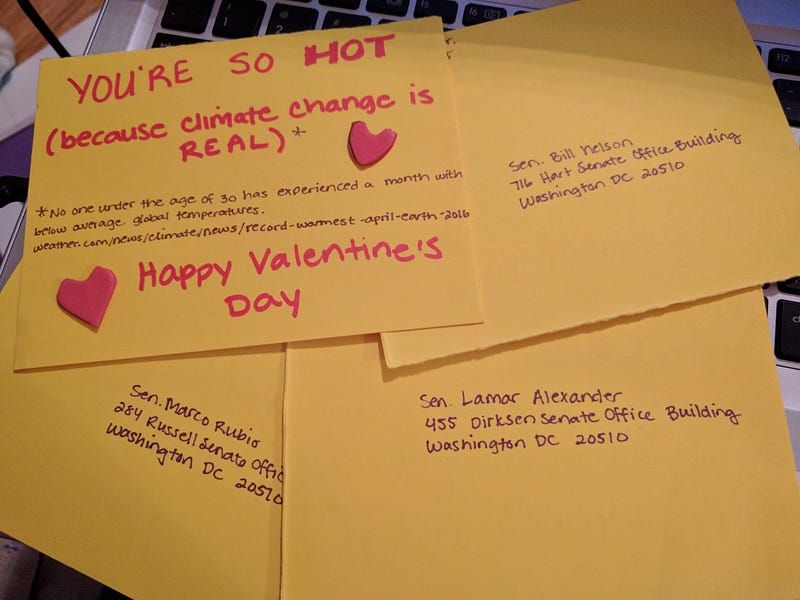 YOU'RE SO HOT
(because climate change is
REAL)*
*No one under the age of 30 has experienced a month with
below average global temperatures.
weather.com/news/climate/news/record-warmest-april-earth-2016
Happy Valentine's
Day
Sen. Bill Nelson
716 Hart Senate Office Building
Washington DC 20510
Sen. Marco Rubio
284 Russell Senate Offic
Washington DC 20510
Sen. Lamar Alexander
455 Dirksen Senate Office Building
Washington DC 20510